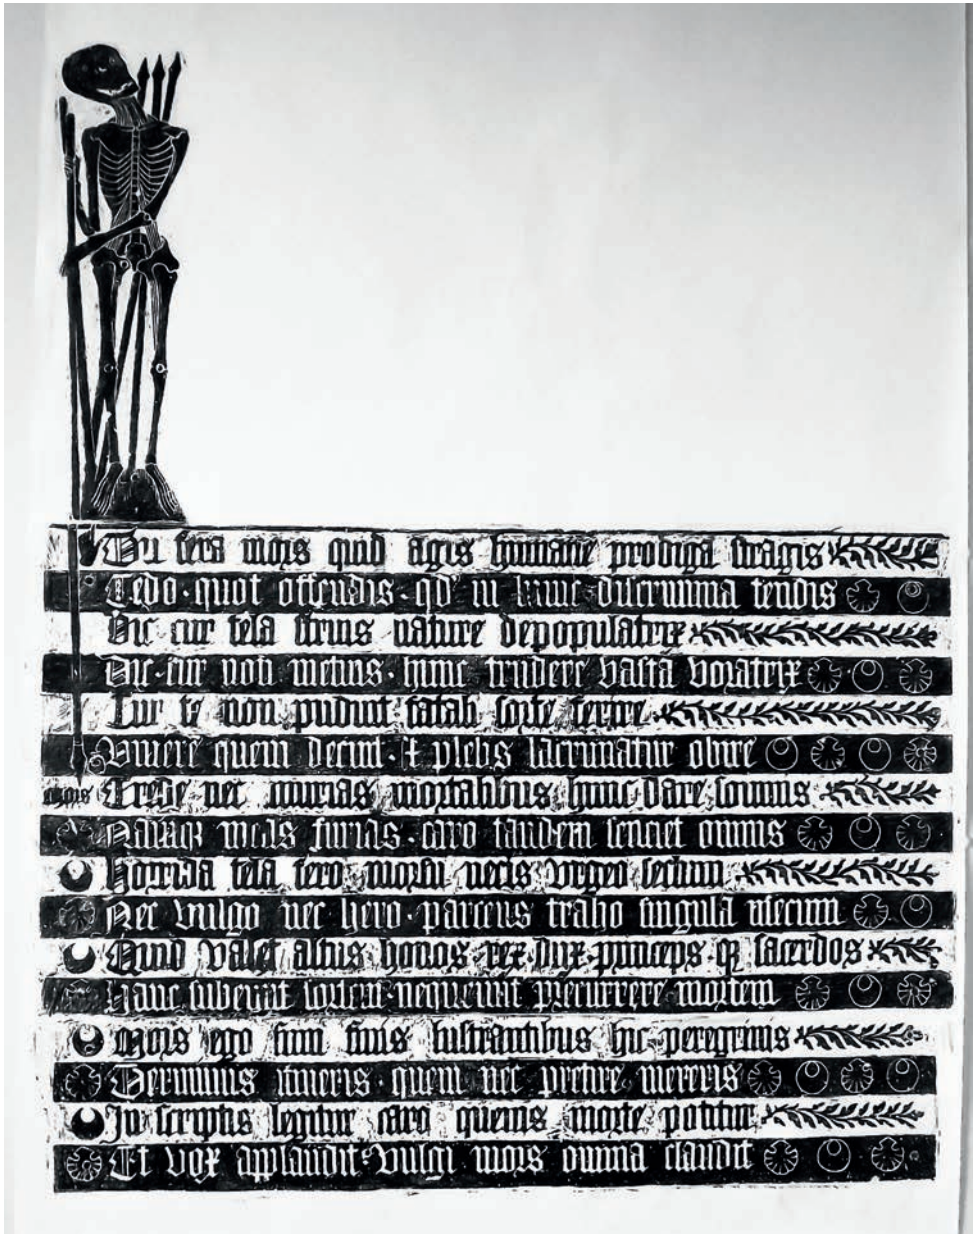 Tu fera mors quid agis humane prodiga stragis
Cedo · quot offendis · qd in hunc discrimina tendis
Dic cur tela struis nature depopulatrix
Dic · cur non metuis · hunc trudere vasta voratrix
Cur te non puduit fatali sorte ferire
Vivere quem decuit · & plebs lacrimatur obire
mors Crede nec iniurias mortalibus hinc dare
meas furias · caro tandem senciet omnis
Horrida tela fero morsu necis urgeo seclum
Nec vulgo nec hero · parcens traho singula mecum
Quid valet altus honos · rex · dux · princeps · q sacerdos
Hanc subeunt sortem · nequeunt precurrere mortem
Mors ego sum finis lustrantibus hic peregrinis
Terminus itineris · quem nec mereris
In scriptis legitur caro quevis morte potitur
Et vox applaudit · vulgi mors omnia claudit